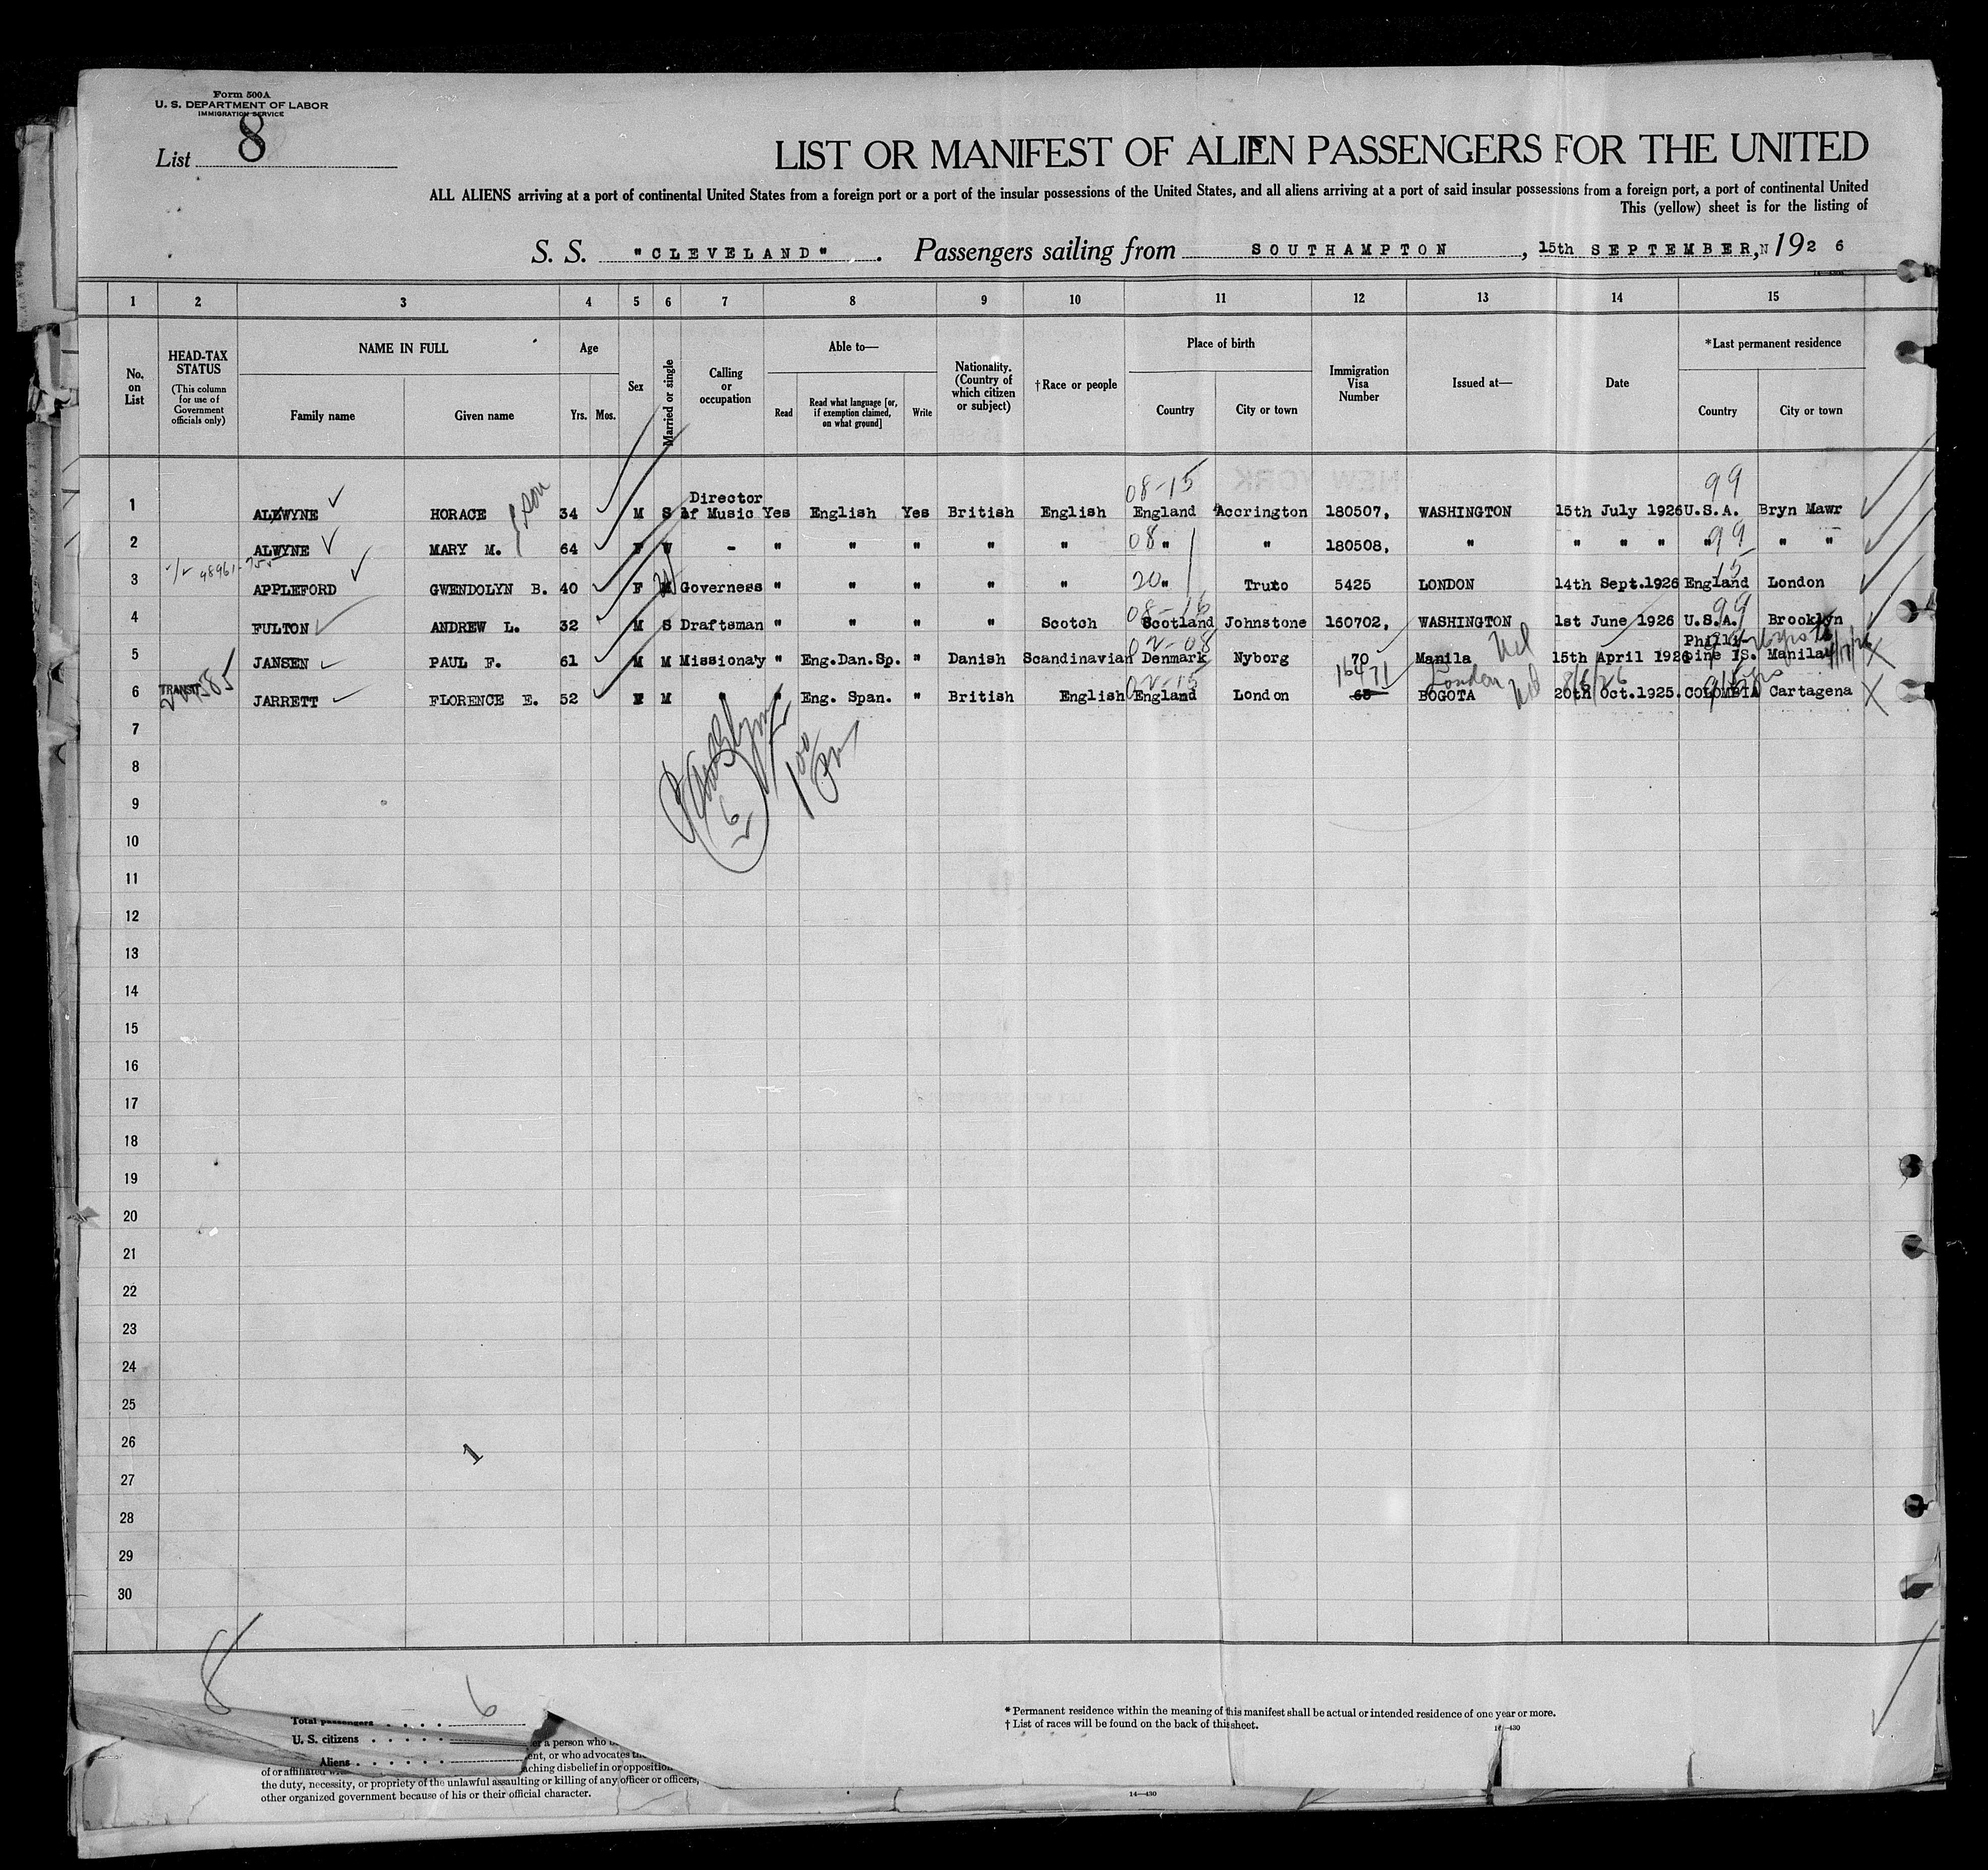 Form 500A
U. S. DEPARTMENT OF LABOR
IMMIGRATION SERVICE
List 8
LIST OR MANIFEST OF ALIEN PASSENGERS FOR THE UNITED
ALL ALIENS arriving at a port of continental United States from a foreign port or a port of the insular possessions of the United States, and all aliens arriving at a port of said insular possessions from a foreign port, a port of continental United
This (yellow) sheet is for the listing of
S. S. "CLEVELAND" . Passengers sailing from SOUTHAMPTON , 15th SEPTEMBER, 1926
1 2 3 4 5 6 7 8 9 10 11 12 13 14 15
No. on List
HEAD-TAX STATUS (This column for use of Government officials only)
NAME IN FULL
Family name Given name
Age
Yrs. Mos.
Sex
Married or single
Calling or occupation
Able to—
Read
Read what language [or, if exemption claimed, on what ground]
Write
Nationality. (Country of which citizen or subject)
†Race or people
Place of birth
Country City or town
Immigration Visa Number
Issued at—
Date
*Last permanent residence
Country City or town
NEW YORK
08-15 99
1 ALEWYNE HORACE & son 34 M S Director of Music Yes English Yes British English England Accrington 180507, WASHINGTON 15th July 1926 U.S.A. Bryn Mawr
2 ALWYNE MARY M. 64 F W - " " " " " 08 " " 180508, " " " " " 99 " "
3 APPLEFORD GWENDOLYN B. 40 F M Governess " " " " " 20 " Truro 5425 LONDON 14th Sept.1926 England 15 London
4 FULTON ANDREW L. 32 M S Draftsman " " " " Scotch 08-16 Scotland Johnstone 160702, WASHINGTON 1st June 1926 U.S.A. 99 Brooklyn
5 JANSEN PAUL F. 61 M M Missiona'y " Eng.Dan.Sp. " Danish Scandinavian 02-08 Denmark Nyborg 70 Manila 15th April 1926 Phillip-pine IS. Manila
6 TRANSIT JARRETT FLORENCE E. 52 F M " " Eng. Span. " British English 02-15 England London 16471 65 London BOGOTA 8/6/26 20th Oct.1925. COLOMBIA Cartagena
7
8
9
10
11
12
13
14
15
16
17
18
19
20
21
22
23
24
25
26
27
28
29
30
6
1
8
Total passengers . . . . 6
U. S. citizens . . . . .
Aliens . . . . .
*Permanent residence within the meaning of this manifest shall be actual or intended residence of one year or more.
†List of races will be found on the back of this sheet.
14—430
a person who
ent, or who advocates
aching disbelief in or opposition
of or affiliated
the duty, necessity, or propriety of the unlawful assaulting or killing of any officer or officers,
other organized government because of his or their official character.
14—430